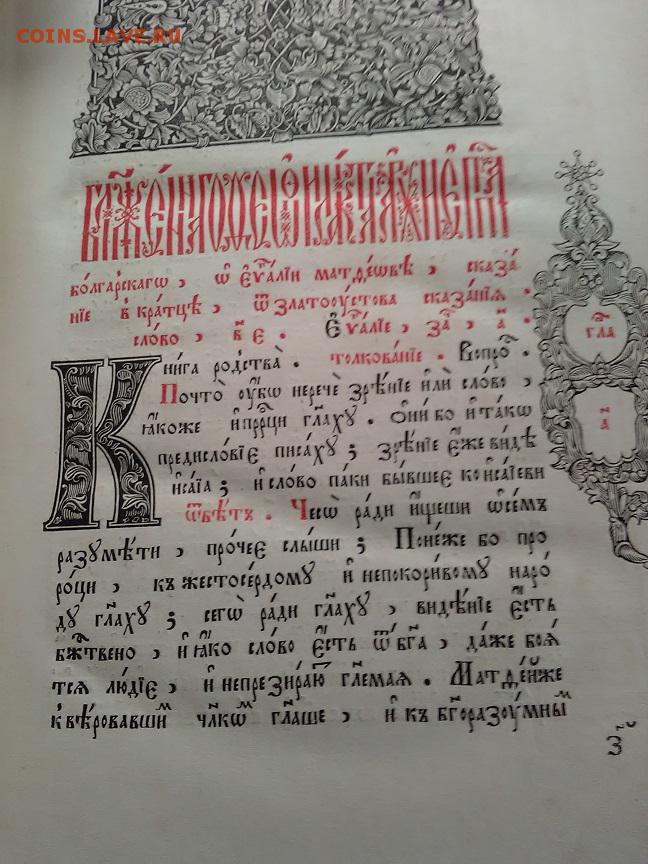 COINS.LAVE.RU
болга́рскагѡ , ѿ еѵⷢ҇а́лїи матде́ѡвѣ , сказа́
нїе в кра́тцѣ , ѿ златоꙋ́стова сказа́нїѧ .
сло́во , в҃ е . Еѵⷢ҇а́лїе , за҄ , а҃ .
гла
а҃
Кни́га ро́дства . толкова́нїе . Вопро́ .
Почто̀ ᲂу҆́бѡ неречѐ зрѣ́нїе и҆лѝ сло́во ,
ꙗ҆́коже и҆прⷪ҇ро́цы гл҃аху . ѻ҆ни́ бо и҆та́кѡ
предисло́вїе писа́хꙋ ; зрѣ́нїе є҆́же ви́дѣ
и҆са́їа ; и҆ сло́во па́ки бы́вшее ко и҆са́їеви
ѿвѣ́тъ . Чесѡ̀ ра́ди и҆́щеши ѡ҆се́мъ
разꙋмѣ́ти , про́чее слы́ши ; Поне́же бо про
ро́цы , къ жестосе́рдомꙋ и҆ непокори́вомꙋ наро́
дꙋ гл҃ахꙋ ; сегѡ̀ ра́ди гл҃ахꙋ , видѣ́нїе є҆́сть
бж҃твено , и҆ ꙗ҆́ко сло́во є҆́сть ѿ бг҃а , да́же боѧ́
тсѧ лю́дїе , и҆ непрезира́ю гл҃емаѧ . Матде́йже
к вѣ́ровавшиⷨ чл҃кѡ гл҃аше , и҆ къ бг҃оразꙋ́мныⷨ
З